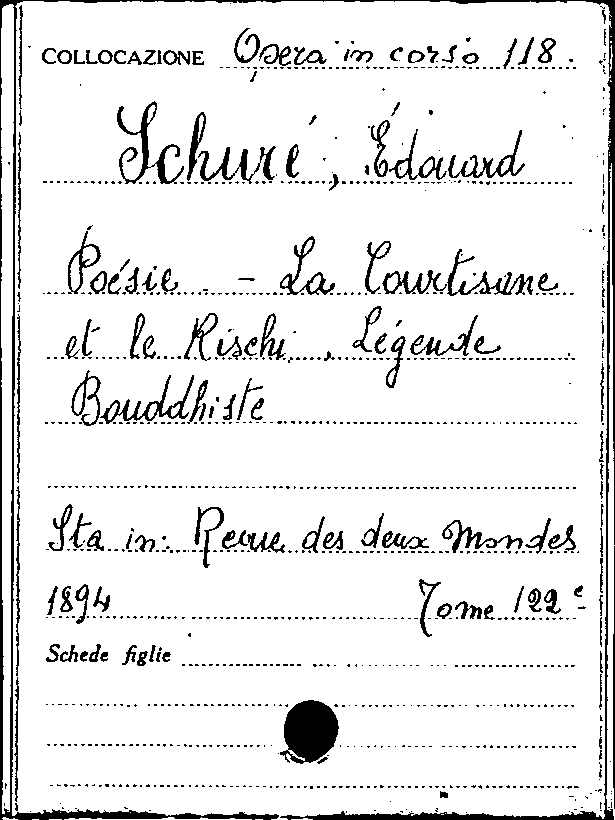 COLLOCAZIONE Opera in corso 118.
Schuré, Édouard
Poésie - La Courtisane
et le Rischi, Légende
Bouddhiste
Sta in: Revue des deux Mondes
1894 Tome 122e
Schede figlie